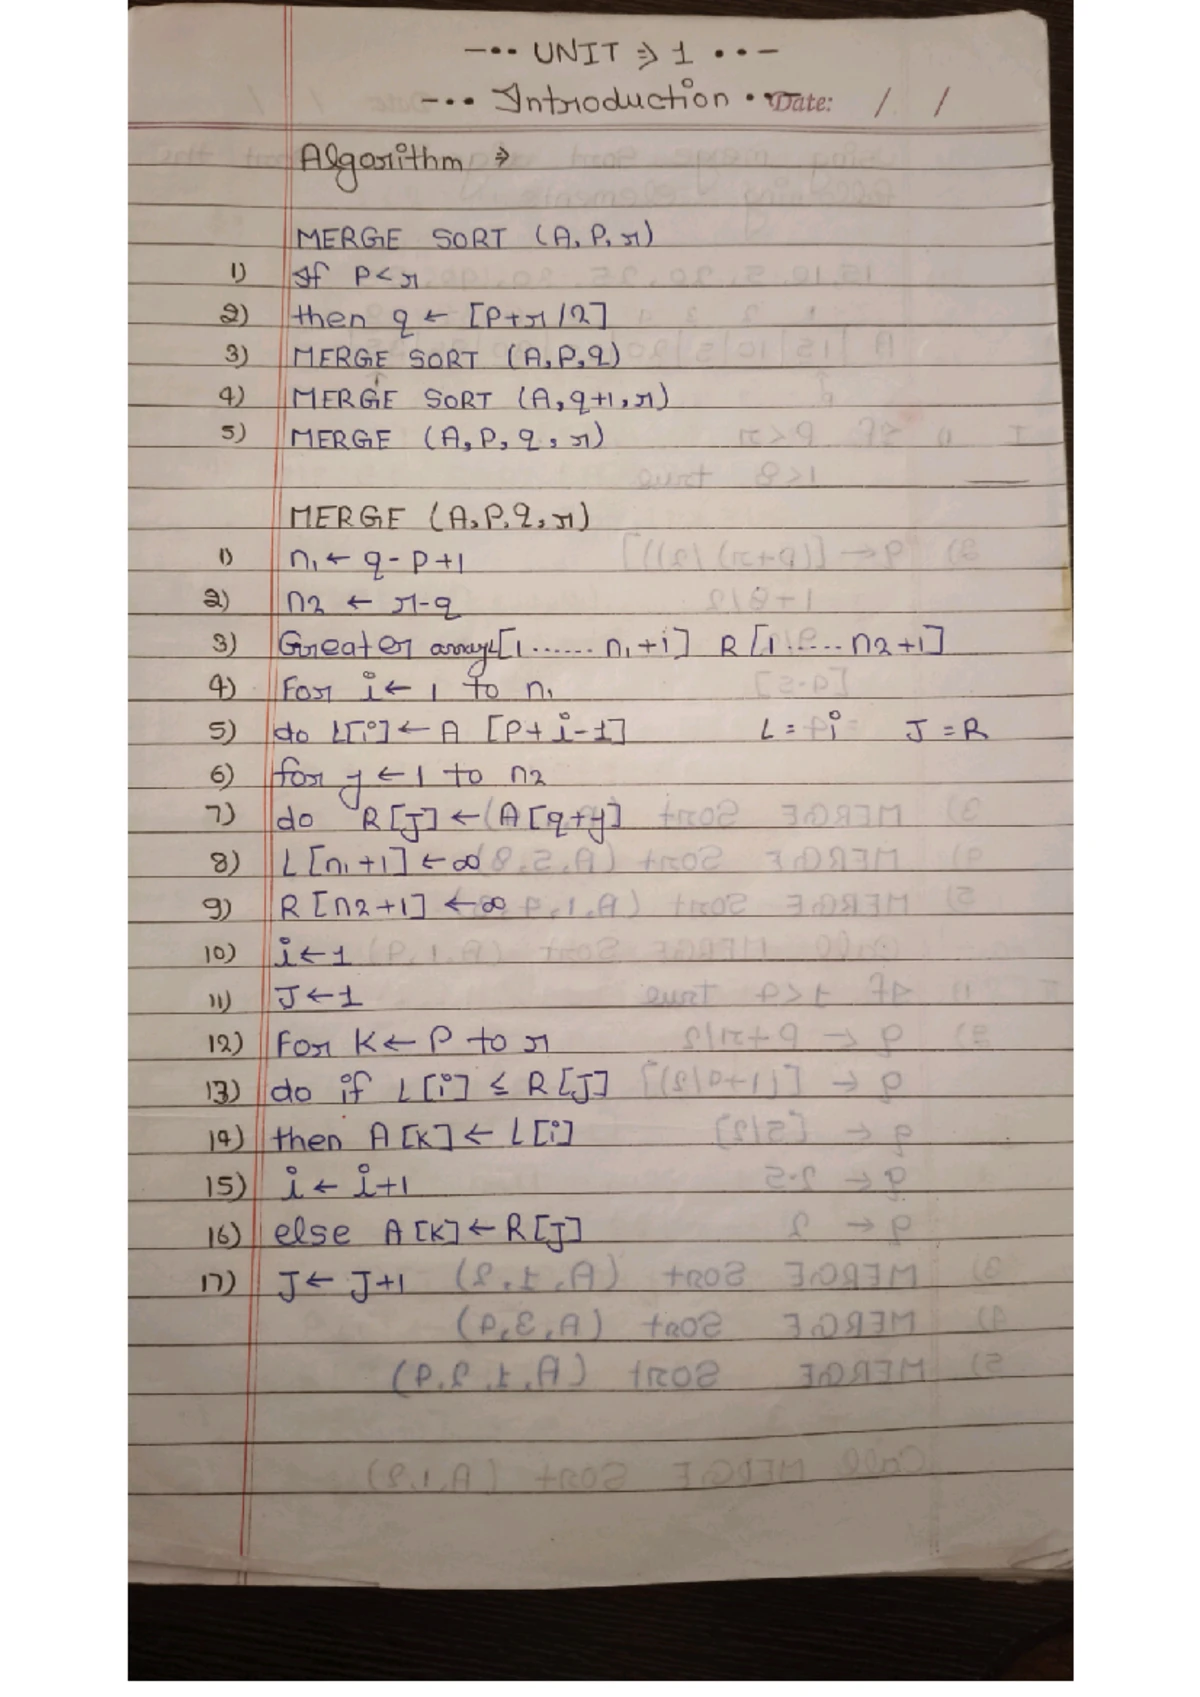 -•• UNIT ⇒ 1 ••-
-•• Introduction •• Date: / /
Algorithm ⇒
MERGE SORT (A, P, r)
1) If P < r
2) then q ← [P+r/2]
3) MERGE SORT (A, P, q)
4) MERGE SORT (A, q+1, r)
5) MERGE (A, P, q, r)
MERGE (A, P, q, r)
1) n1 ← q - P +1
2) n2 ← r-q
3) Greater array L[1...... n1+1] R [1..... n2+1]
4) For i ← 1 to n1
5) do L[i] ← A [P+ i-1] L = i J = R
6) for j ← 1 to n2
7) do R[J] ← A[q+j]
8) L[n1+1] ← ∞
9) R[n2+1] ← ∞
10) i ← 1
11) J ← 1
12) For K ← P to r
13) do if L[i] ≤ R[J]
14) then A[K] ← L[i]
15) i ← i+1
16) else A[K] ← R[J]
17) J ← J+1